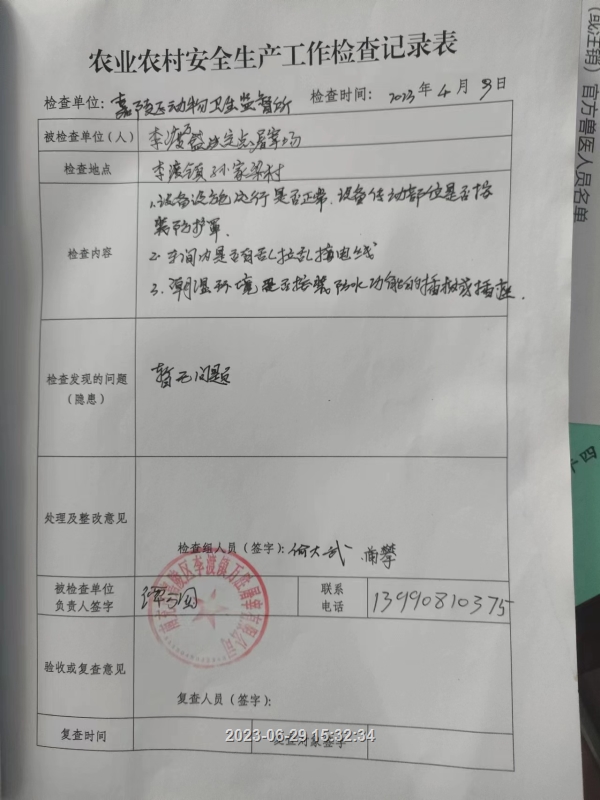 (或注销)官方兽医人员名单
农业农村安全生产工作检查记录表
检查单位: 嘉陵区动物卫生监督所 检查时间: 2023年4月3日
被检查单位(人) 李渡万盛定点屠宰场
检查地点 李渡镇孙家梁村
检查内容
1.设备设施运行是否正常,设备传动部位是否按
装防护罩.
2.车间内是否有乱拉乱接电线
3.潮湿环境是否按装防水功能的插板或插座.
检查发现的问题
(隐患)
暂无问题
处理及整改意见
检查组人员(签字): 何大武
被检查单位
负责人签字
联系
电话
13990810375
验收或复查意见
复查人员(签字):
2023-06-29 15:32:34
复查时间
复查对象签字